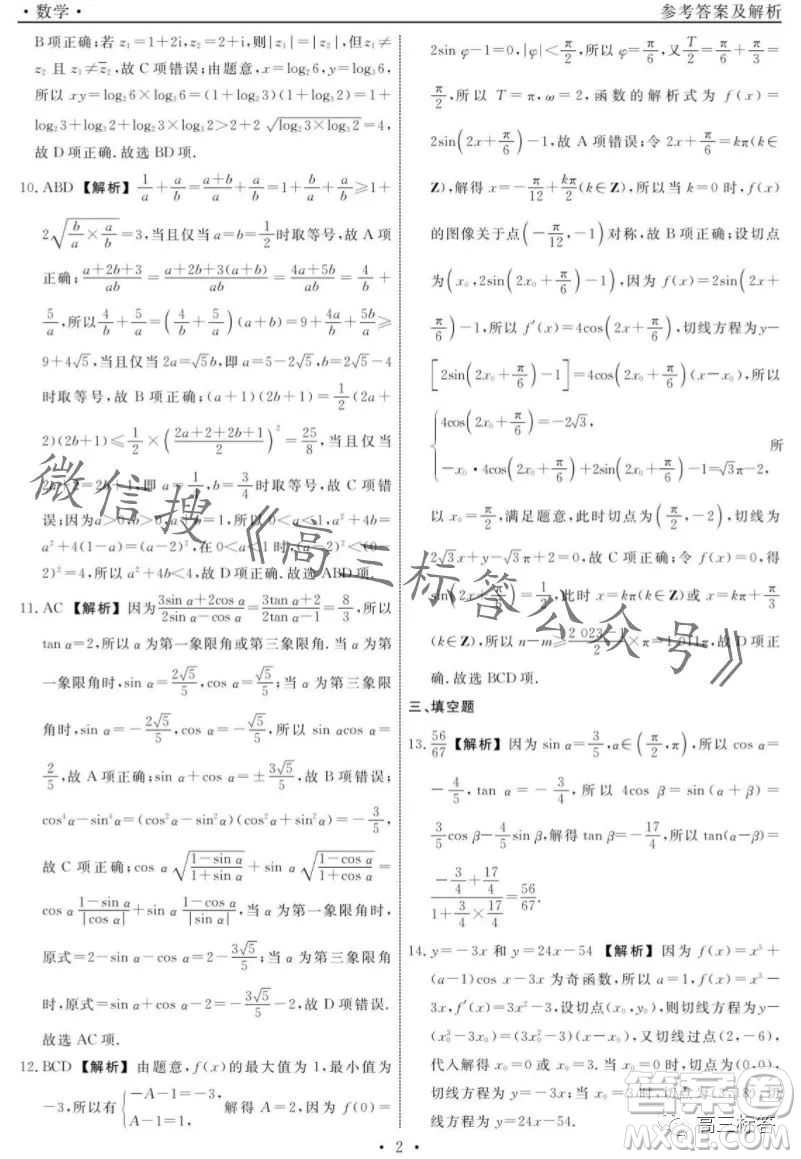 ·数学·
参考答案及解析
B项正确;若z₁=1+2i,z₂=2+i,则|z₁|=|z₂|,但z₁≠
z₂且z₁≠z̄₂,故C项错误;由题意,x=log₂6,y=log₃6,
所以xy=log₂6×log₃6=(1+log₂3)(1+log₃2)=1+
log₂3+log₃2+log₂3×log₃2>2+2√(log₂3×log₃2)=4,
故D项正确.故选BD项.
10. ABD 【解析】1/a+a/b=(a+b)/a+a/b=1+b/a+a/b≥1+
2√(b/a×a/b)=3,当且仅当a=b=1/2时取等号,故A项
正确;(a+2b+3)/ab=(a+2b+3a+3b)/ab=(4a+5b)/ab=4/b+
5/a,所以4/b+5/a=(4/b+5/a)(a+b)=9+4a/b+5b/a≥
9+4√5,当且仅当2a=√5b,即a=5-2√5,b=2√5-4
时取等号,故B项正确;(a+1)(2b+1)=1/2(2a+
2)(2b+1)≤1/2×((2a+2+2b+1)/2)²=25/8,当且仅当
2a+2=2b+1,即a=1/4,b=3/4时取等号,故C项错
误;因为a>0,b>0,所以0<a<1,a²+4b=
a²+4(1-a)=(a-2)²,在0<a<1时,(a-2)²<(0-
2)²=4,所以a²+4b<4,故D项正确.故选ABD项.
11. AC 【解析】因为(3sin α+2cos α)/(2sin α-cos α)=(3tan α+2)/(2tan α-1)=8/3,所以
tan α=2,所以α为第一象限角或第三象限角.当α为第
一象限角时,sin α=2√5/5,cos α=√5/5;当α为第三象限
角时,sin α=-2√5/5,cos α=-√5/5,所以sin αcos α=
2/5,故A项正确;sin α+cos α=±3√5/5,故B项错误;
cos⁴α-sin⁴α=(cos²α-sin²α)(cos²α+sin²α)=-3/5,
故C项正确;cos α√((1-sin α)/(1+sin α))+sin α√((1-cos α)/(1+cos α))=
cos α(1-sin α)/|cos α|+sin α(1-cos α)/|sin α|,当α为第一象限角时,
原式=2-sin α-cos α=2-3√5/5;当α为第三象限角
时,原式=sin α+cos α-2=-3√5/5-2,故D项错误.
故选AC项.
12. BCD 【解析】由题意,f(x)的最大值为1,最小值为
-3,所以有{-A-1=-3, A-1=1, 解得A=2.因为f(0)=
2sin φ-1=0,|φ|<π/2,所以φ=π/6,又T/2=
π/2,所以T=π,ω=2,函数的解析式为f(x)=
2sin(2x+π/6)-1,故A项错误;令2x+π/6=kπ(k∈
Z),解得x=-π/12+kπ/2(k∈Z),所以当k=0时,f(x)
的图像关于点(-π/12,-1)对称,故B项正确;设切点
为(x₀,2sin(2x₀+π/6)-1),因为f(x)=2sin(2x+
π/6)-1,所以f′(x)=4cos(2x+π/6),切线方程为y-
[2sin(2x₀+π/6)-1]=4cos(2x₀+π/6)(x-x₀),所以
{4cos(2x₀+π/6)=-2√3,
-x₀·4cos(2x₀+π/6)+2sin(2x₀+π/6)-1=√3π-2, 所
以x₀=π/2,满足题意,此时切点为(π/2,-2),切线为
2√3x+y-√3π+2=0,故C项正确;令f(x)=0,得
sin(2x+π/6)=1/2,此时x=kπ(k∈Z)或x=π/3+kπ
(k∈Z),所以n-m≥(2 023-1)/2×π=1 011π,故D项正
确.故选BCD项.
三、填空题
13. 56/67【解析】因为sin α=3/5,α∈(π/2,π),所以cos α=
-4/5,tan α=-3/4,所以4cos β=sin(α+β)=
3/5cos β-4/5sin β,解得tan β=-17/4,所以tan(α-β)=
(-3/4+17/4)/(1+3/4×17/4)=56/67.
14. y=-3x和y=24x-54 【解析】因为f(x)=x³+
(a-1)cos x-3x为奇函数,所以a=1,f(x)=x³-
3x,f′(x)=3x²-3,设切点(x₀,y₀),则切线方程为y-
(x₀³-3x₀)=(3x₀²-3)(x-x₀),又切线过点(2,-6),
代入解得x₀=0或x₀=3.当x₀=0时,切点为(0,0),
切线方程为y=-3x;当x₀=3时,切点为(3,18),切
线方程为y=24x-54.
·2·
微信搜《高三标答公众号》
答案圈
高三标答
MXQE.COM